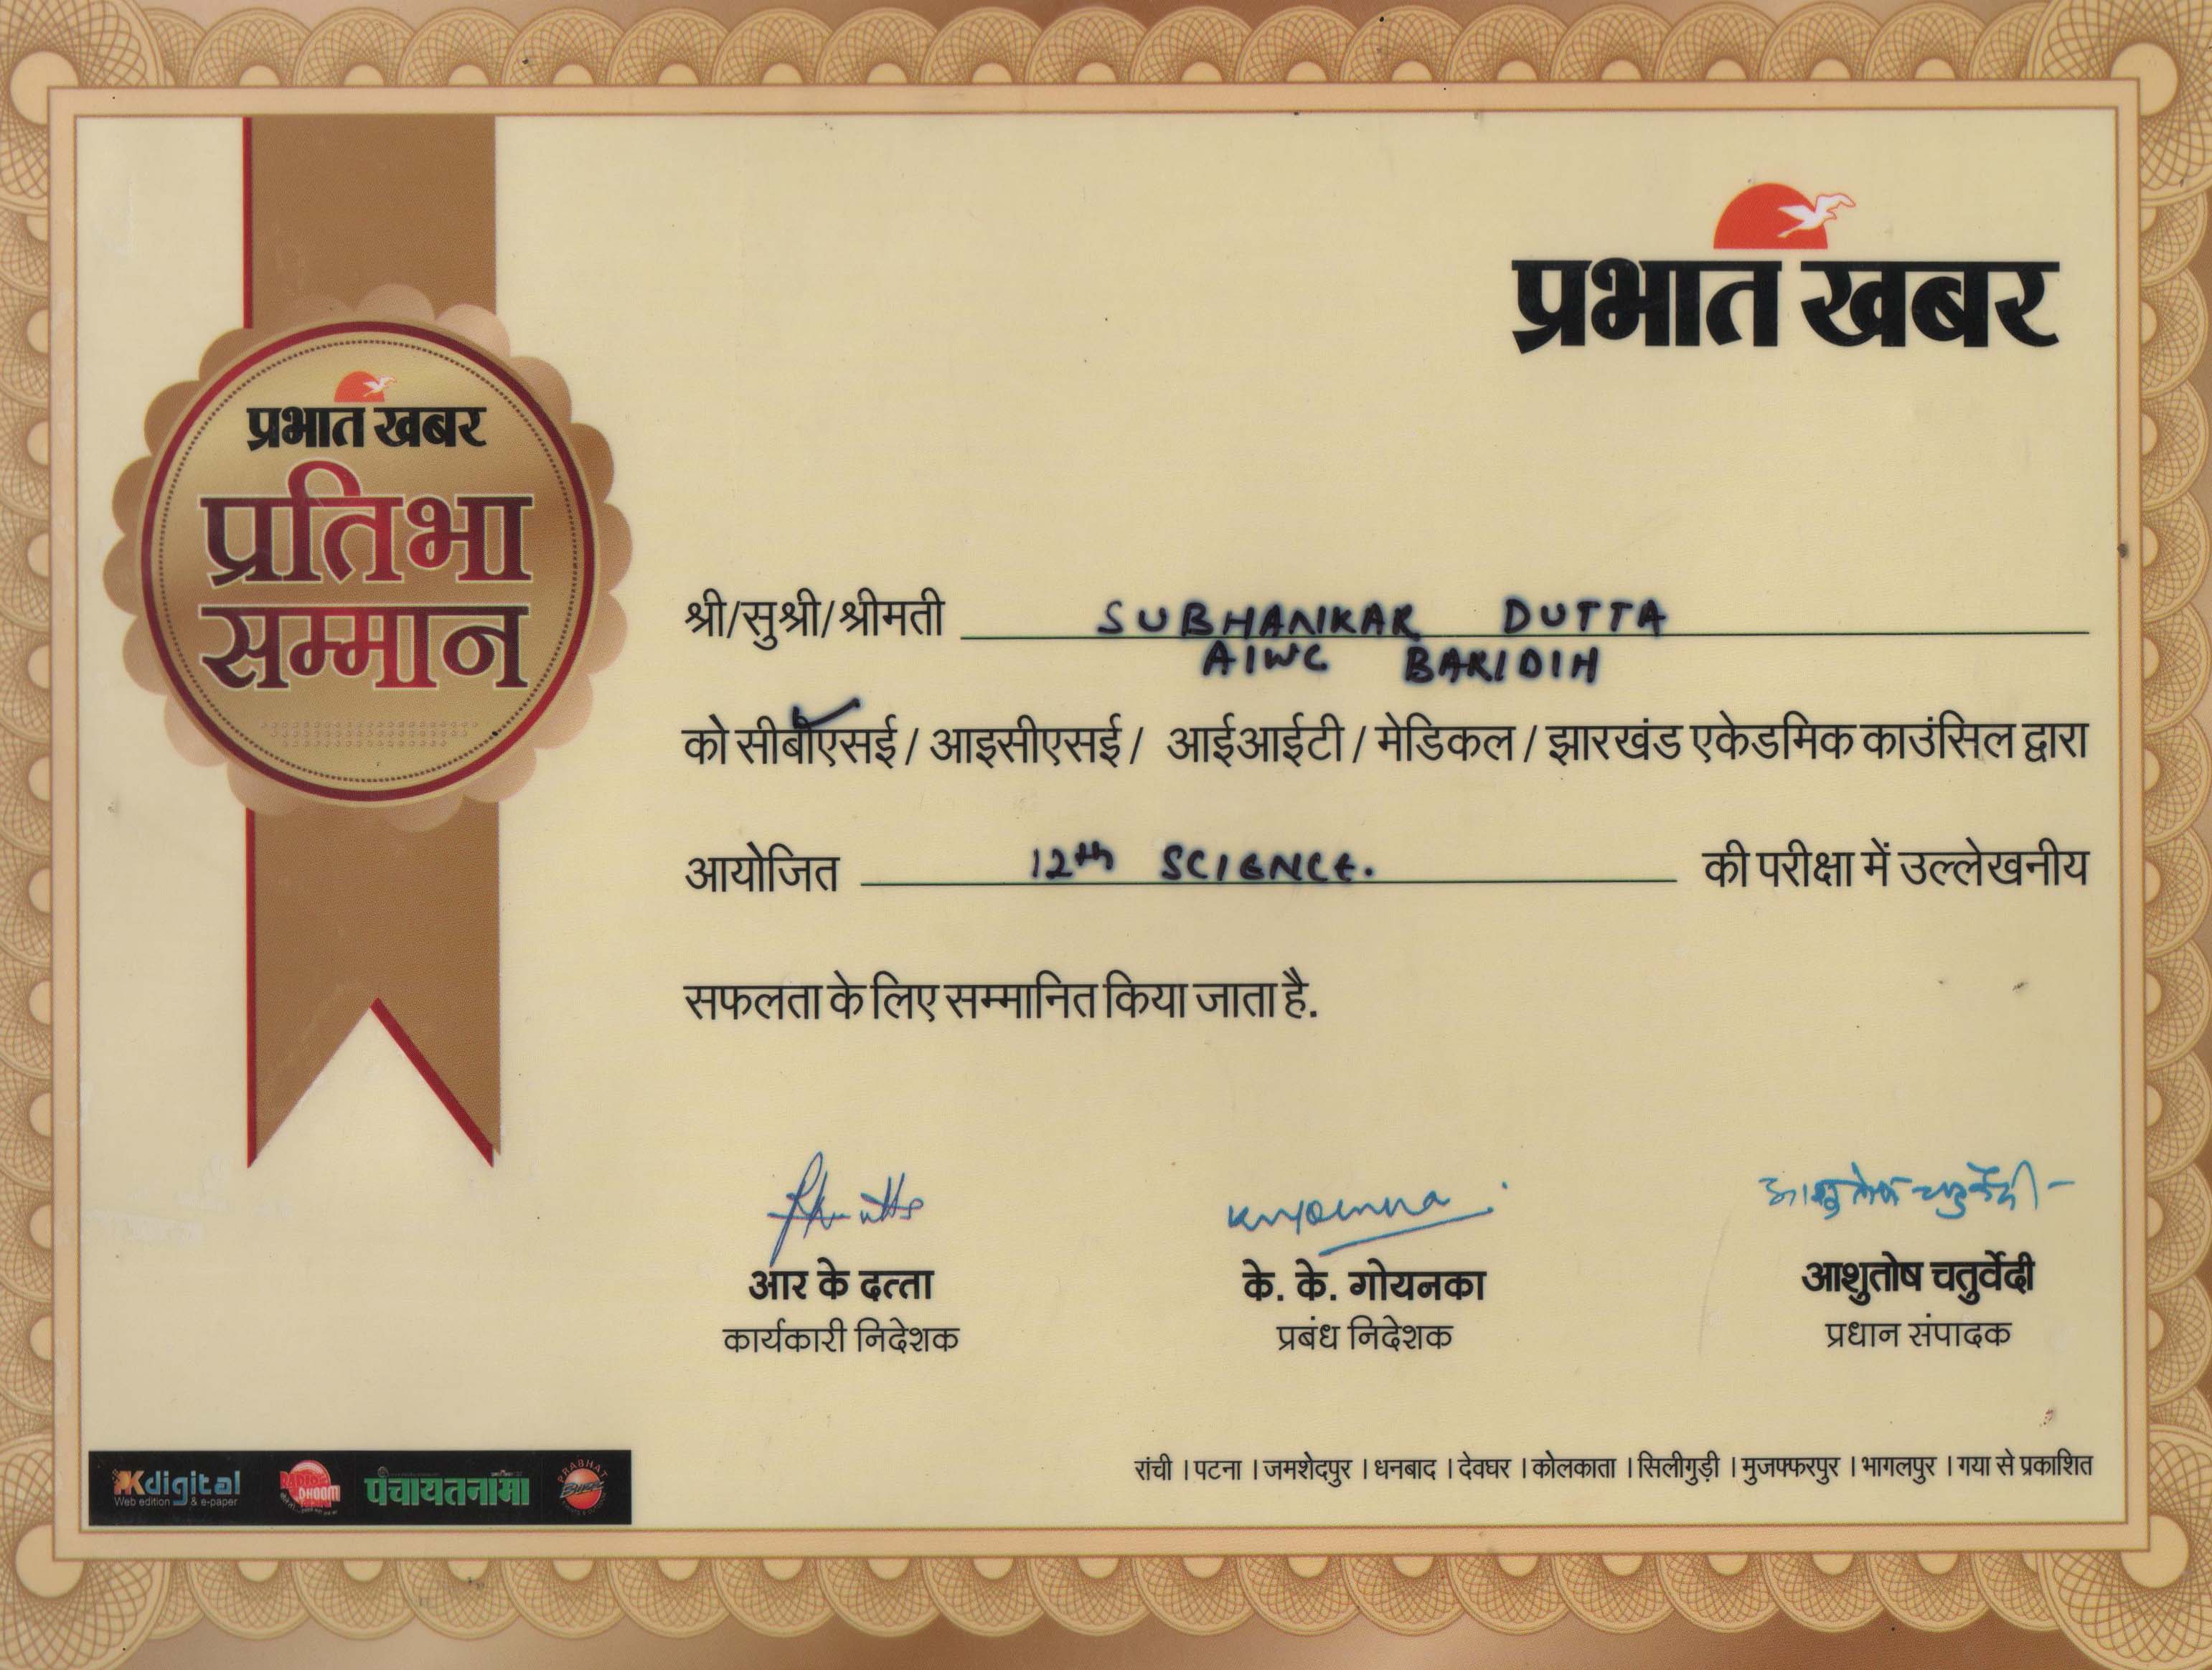 प्रभात खबर
प्रभात खबर
प्रतिभा
सम्मान
श्री/सुश्री/श्रीमती SUBHANKAR DUTTA
AIWC BARIDIH
को सीबीएसई / आइसीएसई / आईआईटी / मेडिकल / झारखंड एकेडमिक काउंसिल द्वारा
आयोजित 12th SCIENCE. की परीक्षा में उल्लेखनीय
सफलता के लिए सम्मानित किया जाता है.
आशुतोष चतुर्वेदी
आर के दत्ता
के. के. गोयनका
आशुतोष चतुर्वेदी
कार्यकारी निदेशक
प्रबंध निदेशक
प्रधान संपादक
PKdigital
Web edition & e-paper
RADIO
DHOOM
पंचायतनामा
PRABHAT
रांची । पटना । जमशेदपुर । धनबाद । देवघर । कोलकाता । सिलीगुड़ी । मुजफ्फरपुर । भागलपुर । गया से प्रकाशित